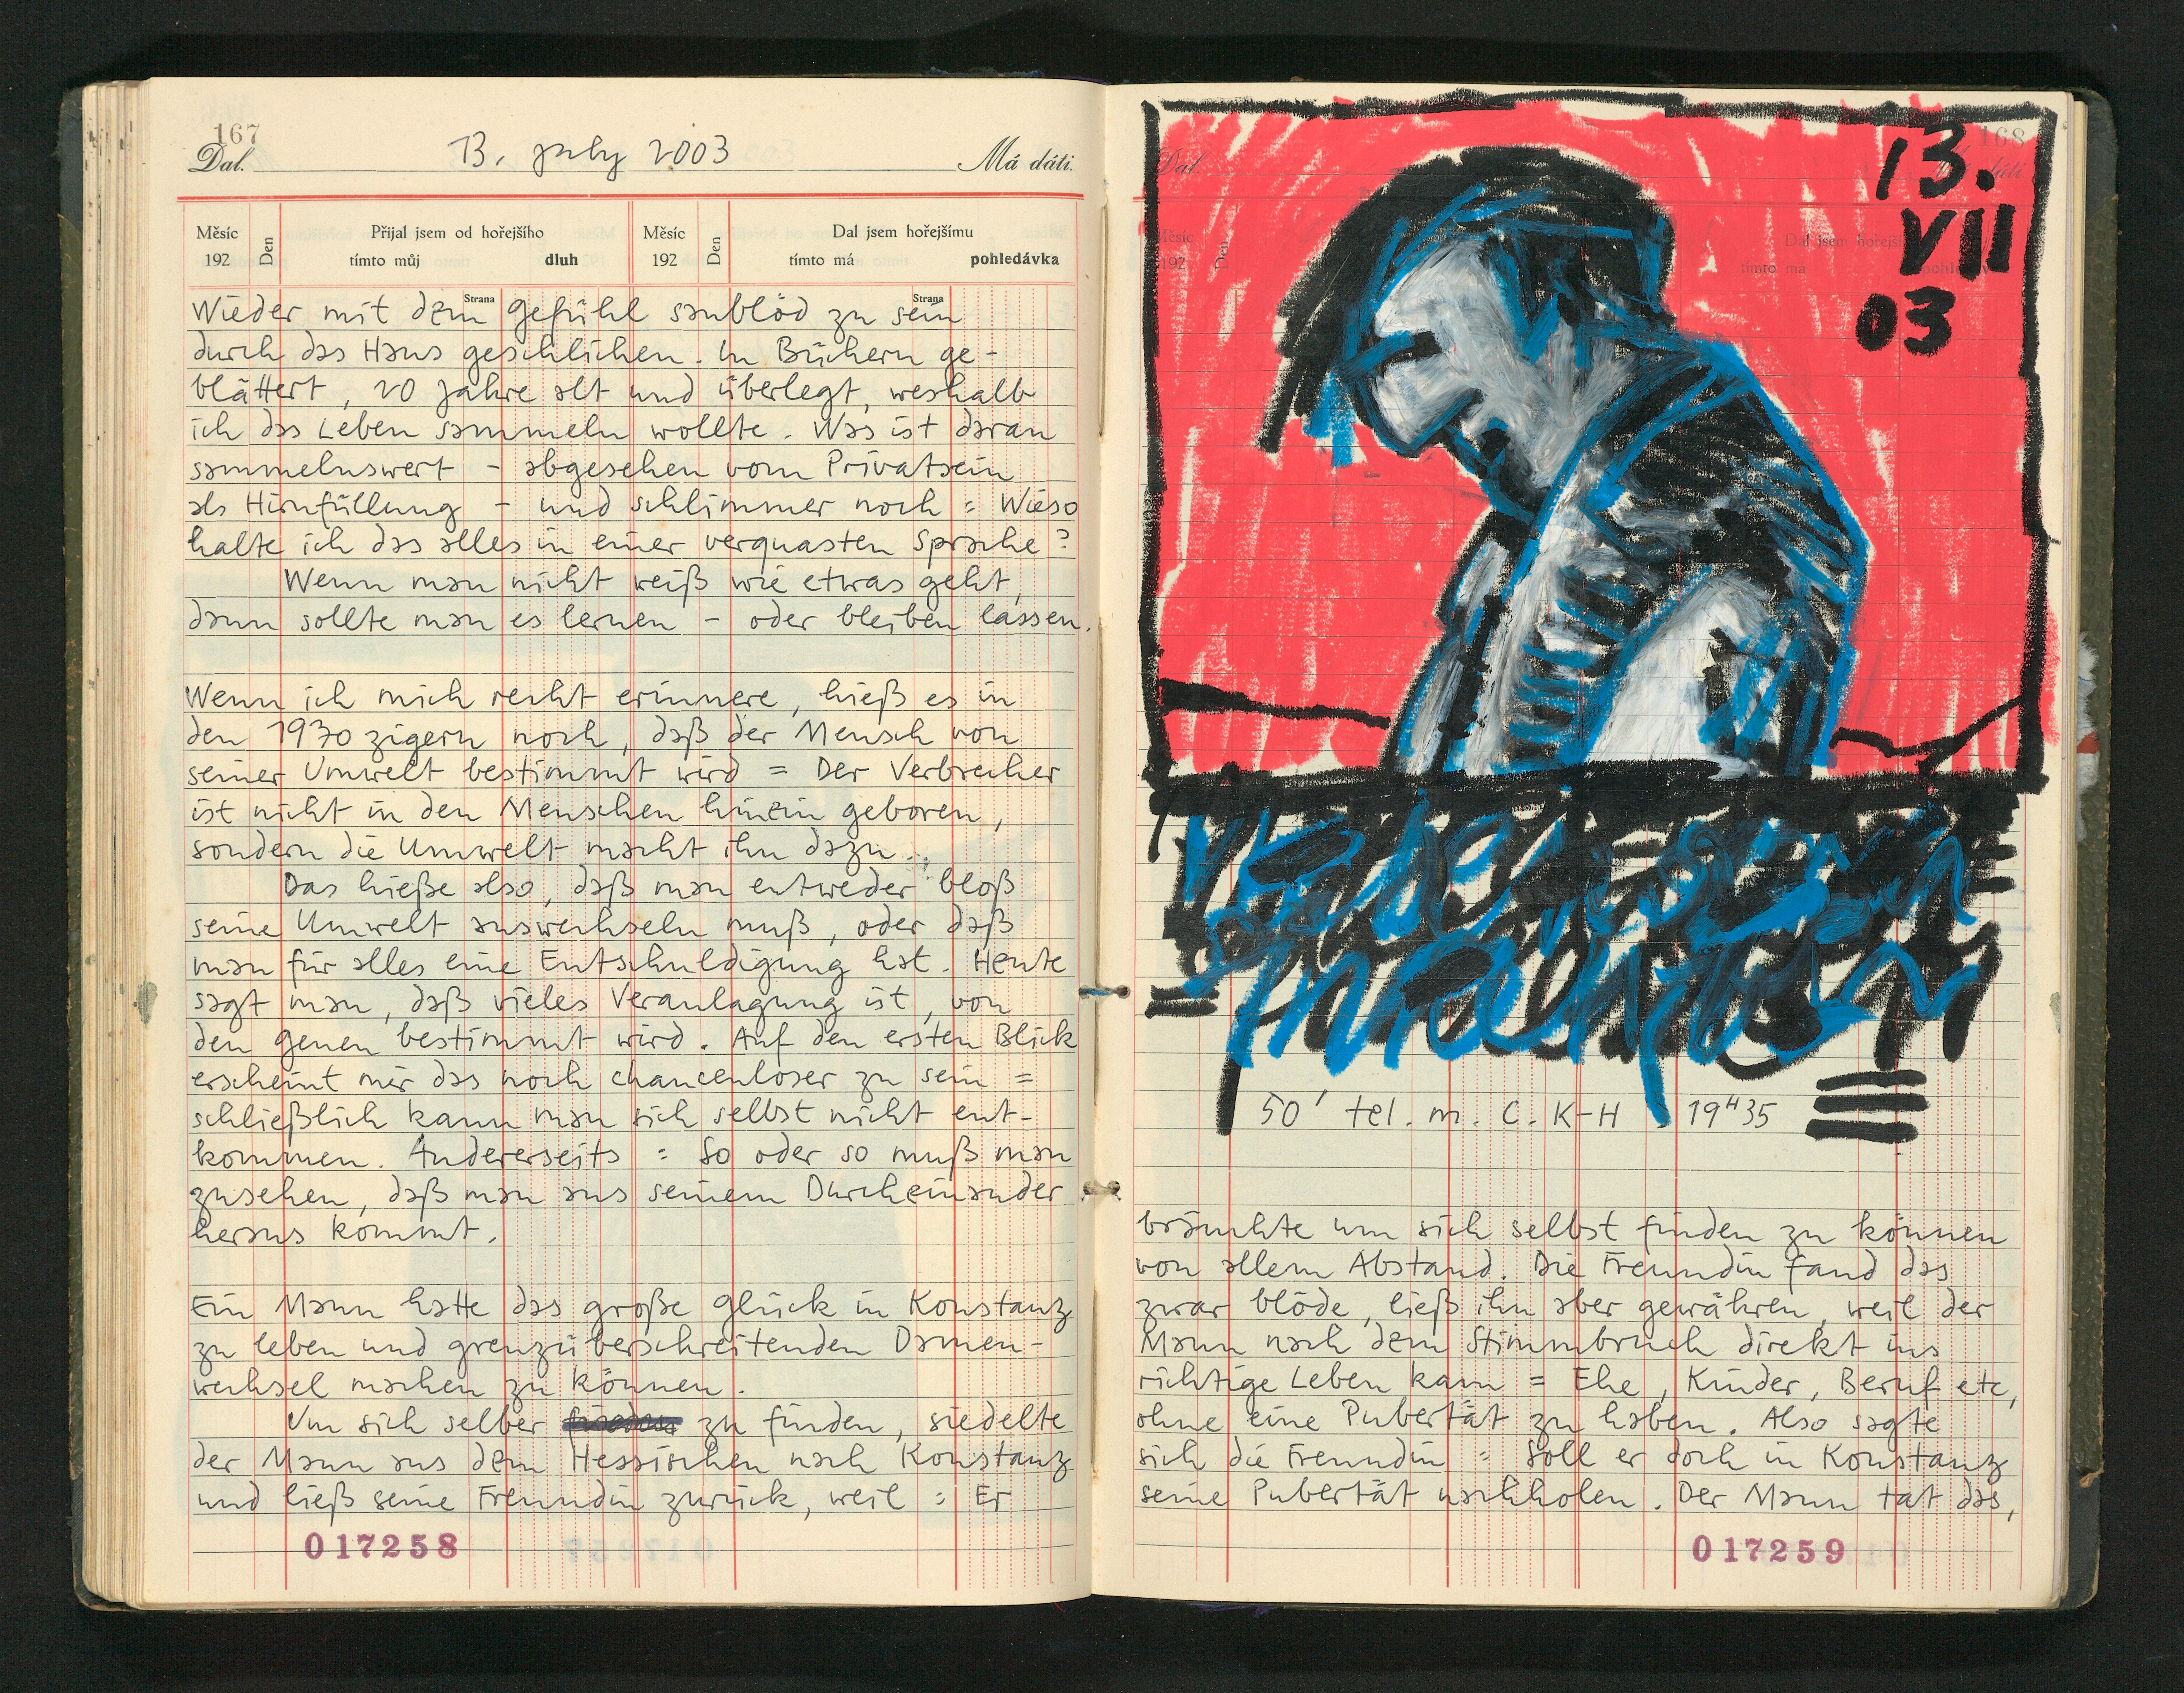 167
Dal. 13. july 2003 Má dáti.
Měsíc Den Přijal jsem od hořejšího Měsíc Den Dal jsem hořejšímu
192 tímto můj dluh 192 tímto má pohledávka
Strana Strana
Wieder mit dem Gefühl saublöd zu sein
durch das Haus geschlichen. In Büchern ge-
blättert, 20 Jahre alt und überlegt, weshalb
ich das Leben sammeln wollte. Was ist daran
sammelnswert - abgesehen vom Privatsein
als Hirnfüllung - und schlimmer noch = Wieso
halte ich das alles in einer verquasten Sprache?
Wenn man nicht weiß wie etwas geht,
dann sollte man es lernen - oder bleiben lassen.
Wenn ich mich recht erinnere, hieß es in
den 1970zigern noch, daß der Mensch von
seiner Umwelt bestimmt wird = Der Verbrecher
ist nicht in den Menschen hinein geboren,
sondern die Umwelt macht ihn dazu.
Das hieße also, daß man entweder bloß
seine Umwelt auswechseln muß, oder daß
man für alles eine Entschuldigung hat. Heute
sagt man, daß vieles Veranlagung ist, von
den Genen bestimmt wird. Auf den ersten Blick
erscheint mir das noch chancenloser zu sein =
schließlich kann man sich selbst nicht ent-
kommen. Andererseits = So oder so muß man
zusehen, daß man aus seinem Durcheinander
heraus kommt.
Ein Mann hatte das große Glück in Konstanz
zu leben und grenzüberschreitenden Damen-
wechsel machen zu können.
Um sich selber zu finden, siedelte
der Mann aus dem Hessischen nach Konstanz
und ließ seine Freundin zurück, weil = Er
017258
168
Dal. dáti.
Měsíc Den Dal jsem hořejší
192 tímto má
13.
VII
03
50' tel. m. C. K-H 19H35
bräuchte um sich selbst finden zu können
von allem Abstand. Die Freundin fand das
zwar blöde, ließ ihn aber gewähren, weil der
Mann nach dem Stimmbruch direkt ins
richtige Leben kam = Ehe, Kinder, Beruf etc,
ohne eine Pubertät zu haben. Also sagte
sich die Freundin = Soll er doch in Konstanz
seine Pubertät nachholen. Der Mann tat das,
017259